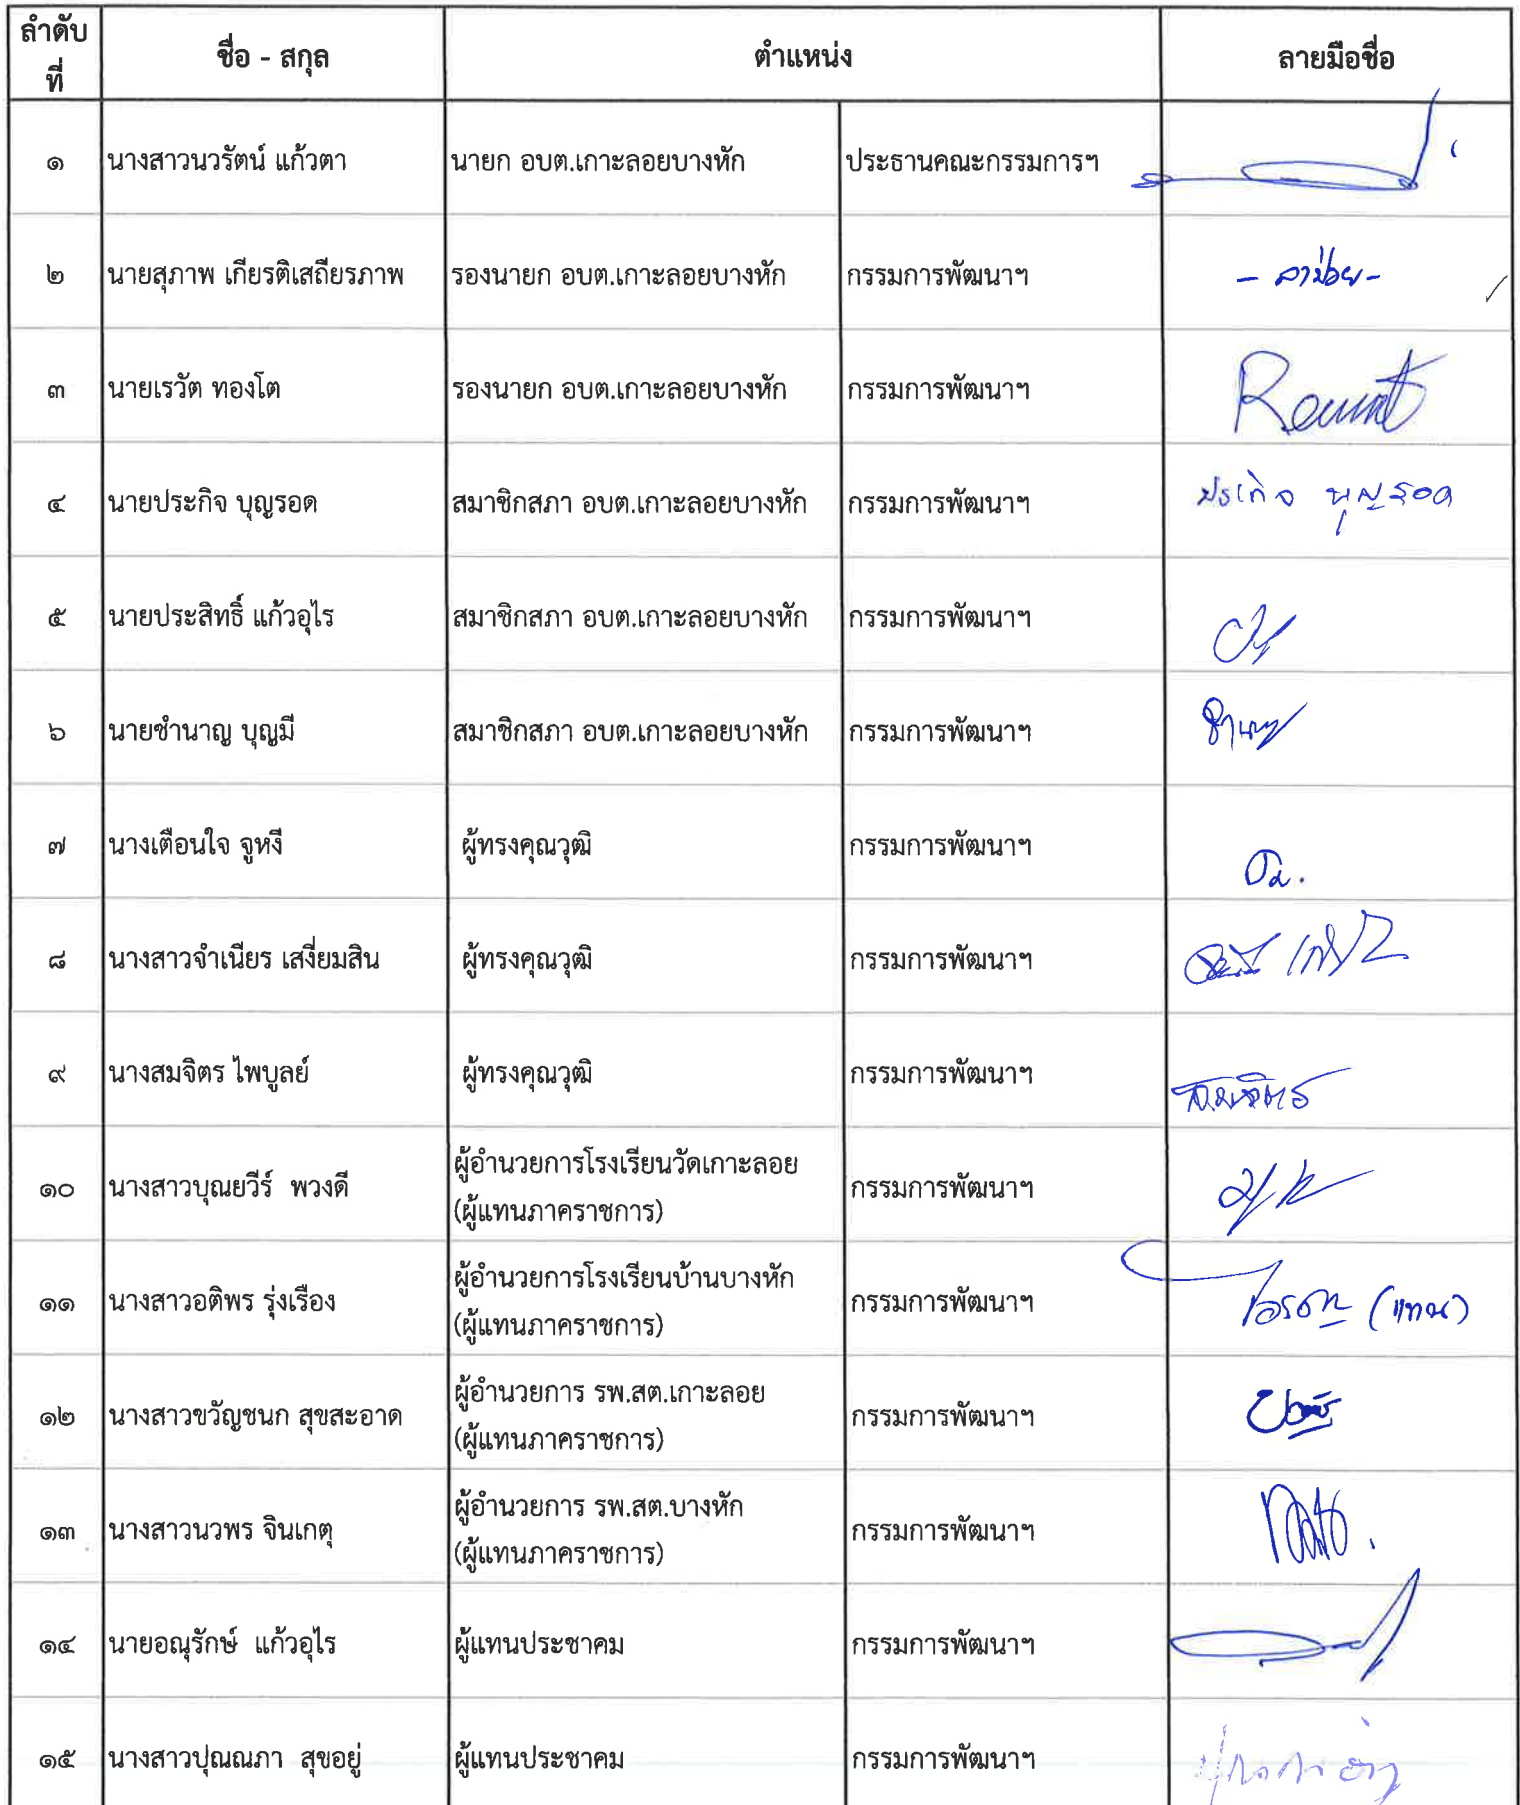 ลำดับที่ ชื่อ - สกุล ตำแหน่ง ลายมือชื่อ
๑ นางสาวนวรัตน์ แก้วตา นายก อบต.เกาะลอยบางหัก ประธานคณะกรรมการฯ
๒ นายสุภาพ เกียรติเสถียรภาพ รองนายก อบต.เกาะลอยบางหัก กรรมการพัฒนาฯ - ลาป่วย -
๓ นายเรวัต ทองโต รองนายก อบต.เกาะลอยบางหัก กรรมการพัฒนาฯ
๔ นายประกิจ บุญรอด สมาชิกสภา อบต.เกาะลอยบางหัก กรรมการพัฒนาฯ ประกิจ บุญรอด
๕ นายประสิทธิ์ แก้วอุไร สมาชิกสภา อบต.เกาะลอยบางหัก กรรมการพัฒนาฯ
๖ นายชำนาญ บุญมี สมาชิกสภา อบต.เกาะลอยบางหัก กรรมการพัฒนาฯ
๗ นางเตือนใจ จูหงี ผู้ทรงคุณวุฒิ กรรมการพัฒนาฯ
๘ นางสาวจำเนียร เสงี่ยมสิน ผู้ทรงคุณวุฒิ กรรมการพัฒนาฯ
๙ นางสมจิตร ไพบูลย์ ผู้ทรงคุณวุฒิ กรรมการพัฒนาฯ สมจิตร
๑๐ นางสาวบุณยวีร์ พวงดี ผู้อำนวยการโรงเรียนวัดเกาะลอย กรรมการพัฒนาฯ
(ผู้แทนภาคราชการ)
๑๑ นางสาวอติพร รุ่งเรือง ผู้อำนวยการโรงเรียนบ้านบางหัก กรรมการพัฒนาฯ (แทน)
(ผู้แทนภาคราชการ)
๑๒ นางสาวขวัญชนก สุขสะอาด ผู้อำนวยการ รพ.สต.เกาะลอย กรรมการพัฒนาฯ
(ผู้แทนภาคราชการ)
๑๓ นางสาวนวพร จินเกตุ ผู้อำนวยการ รพ.สต.บางหัก กรรมการพัฒนาฯ
(ผู้แทนภาคราชการ)
๑๔ นายอณุรักษ์ แก้วอุไร ผู้แทนประชาคม กรรมการพัฒนาฯ
๑๕ นางสาวปุณณภา สุขอยู่ ผู้แทนประชาคม กรรมการพัฒนาฯ